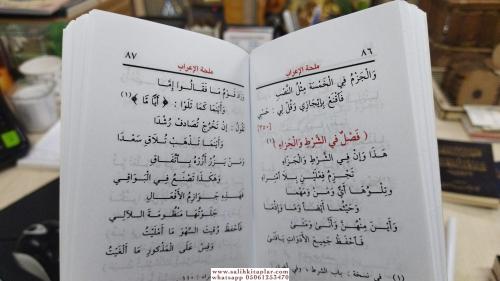 ٨٦
ملحة الإعراب
وَالْجَزْمُ فِي الْخَمْسَةِ مِثْلُ النَّصْبِ
فَاقْنَعْ بِإِيْجَازِي وَقُلْ لِي : حَسْبِي
[٣٥٠]
( فَصْلٌ فِي الشَّرْطِ وَالْجَزَاءِ ) (١)
هَذَا وَإِنْ فِي الشَّرْطِ وَالْجَزَاءِ
تَجْزِمُ فِعْلَيْنِ بِلَا امْتِرَاءِ
وَتِلْوُهَا أَيٌّ وَمَنْ وَمَهْمَا
وَحَيْثُمَا أَيْضًا وَمَا وَإِذْمَا
وَأَيْنَ مِنْهُنَّ وَأَنَّى وَمَتَى
فَاحْفَظْ جَمِيعَ الْأَدَوَاتِ يَا فَتَى
(١) في نسخة : باب الشرط ، وفي
٨٧
ملحة الإعراب
وَزَادَ قَوْمٌ مَا فَقَالُوا إِمَّا
وَأَيْنَمَا كَمَا تَلَوْا : ﴿ أَيًّا مَّا ﴾ (١)
تَقُولُ : إِنْ تَخْرُجْ تُصَادِفْ رُشْدَا
وَأَيْنَمَا تَذْهَبْ تُلَاقِ سَعْدَا
وَمَنْ يَزُرْ أَزُرْهُ بِاتِّفَاقِ
وَهَكَذَا تَصْنَعُ فِي الْبَوَاقِي
فَهَذِهِ جَوَازِمُ الْأَفْعَالِ
جَلَوْتُهَا مَنْظُومَةَ اللَّآلِي
فَاحْفَظْ وُقِيتَ السَّهْوَ مَا أَمْلَيْتُ
وَقِسْ عَلَى الْمَذْكُورِ مَا أَلْغَيْتُ
www.salihkitaplar.com
whatsapp 05061253470